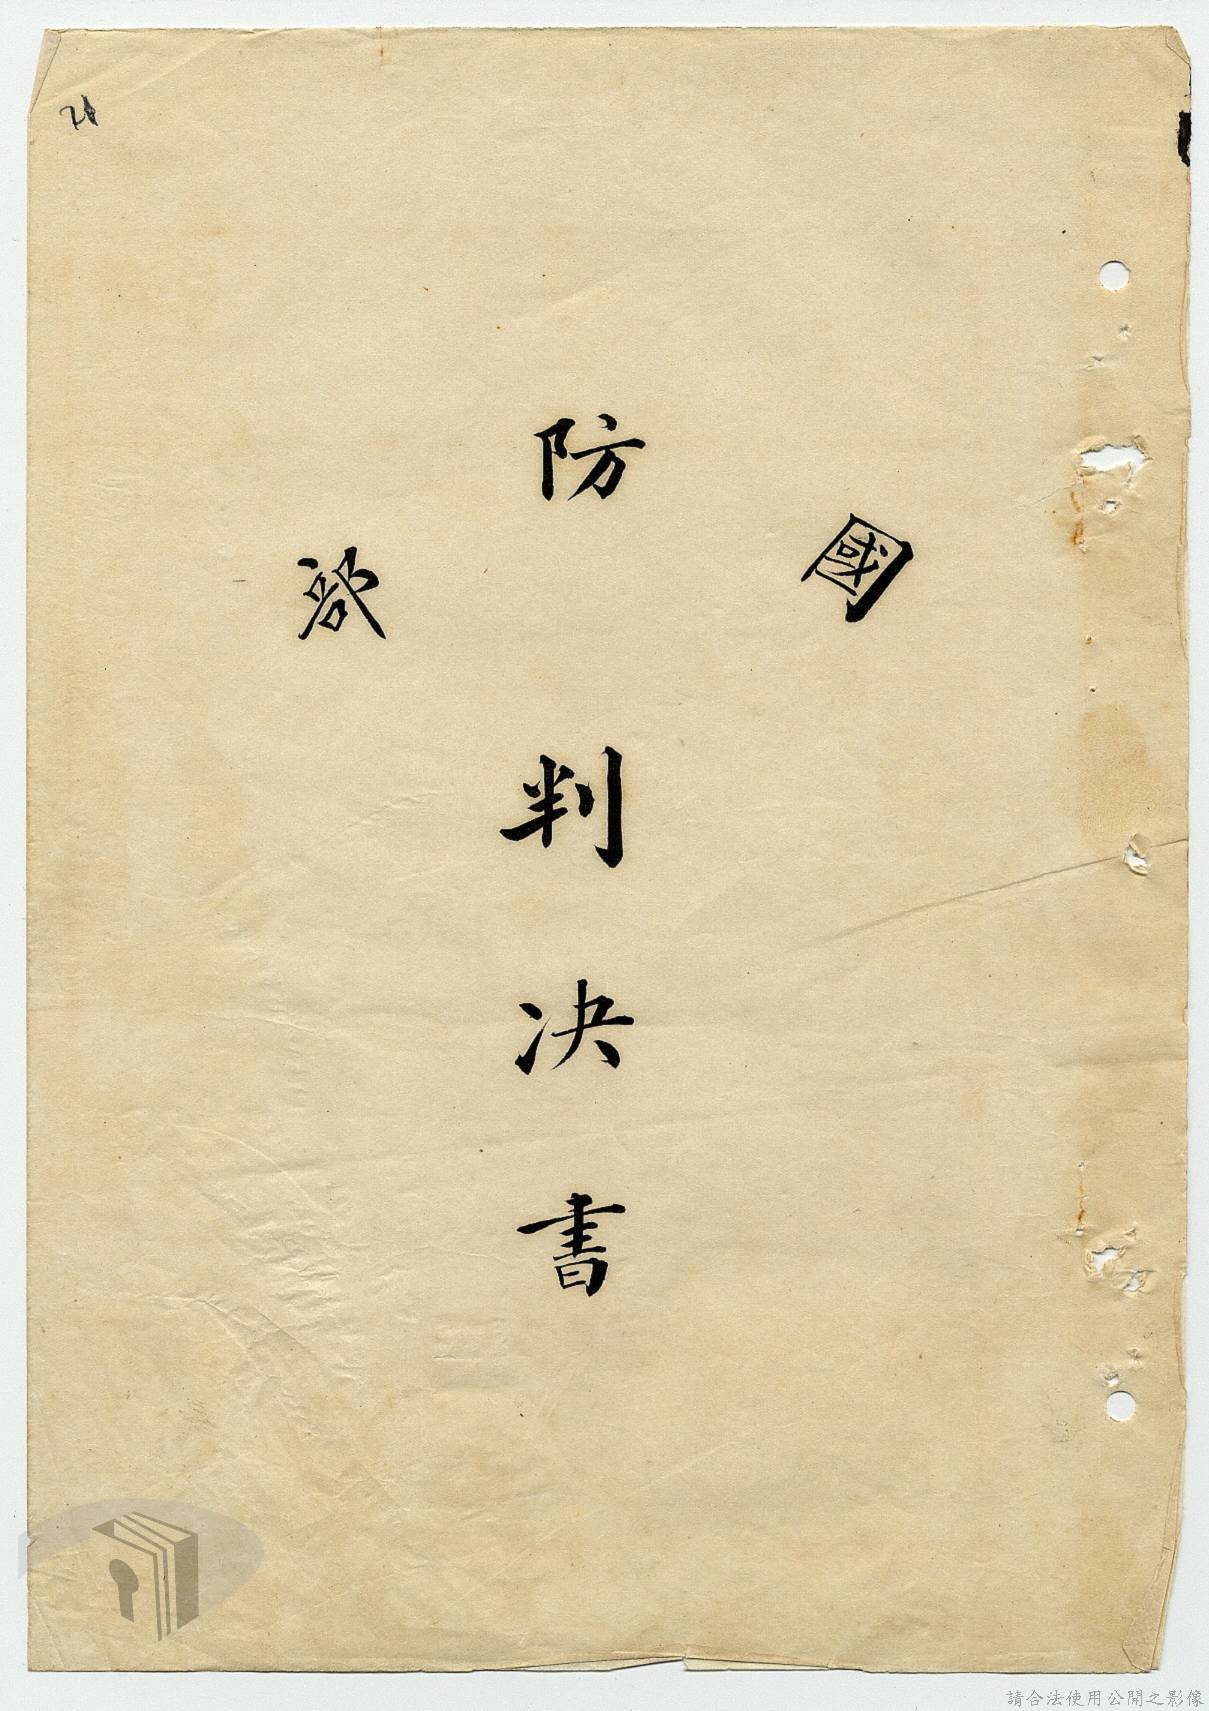 21
國防部
判决書
請合法使用公開之影像